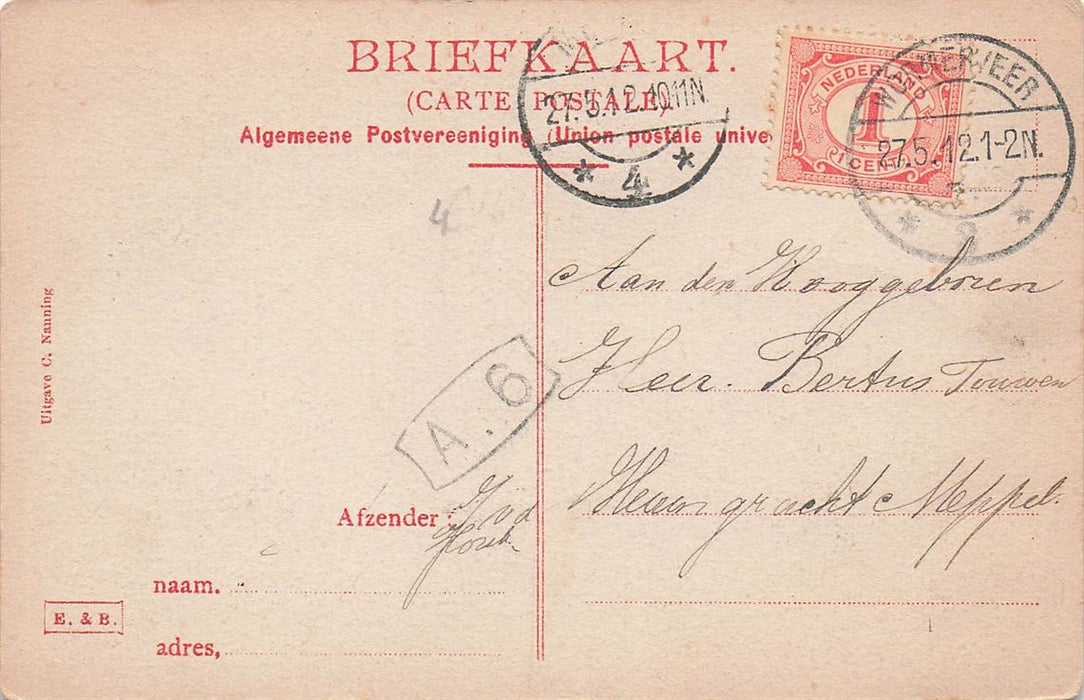 BRIEFKAART.
(CARTE POSTALE)
Algemeene Postvereeniging (Union postale unive
27.5.12.10-11N.
* 4 *
NEDERLAND
1
1 CENT
WORMERVEER
27.5.12.1-2N.
* 2 *
4
Uitgave C. Nanning
A..6
Aan den Hooggeboren
Heer. Bertus Touwen
Heerengracht Meppel.
Afzender:
naam.
adres,
E. & B.